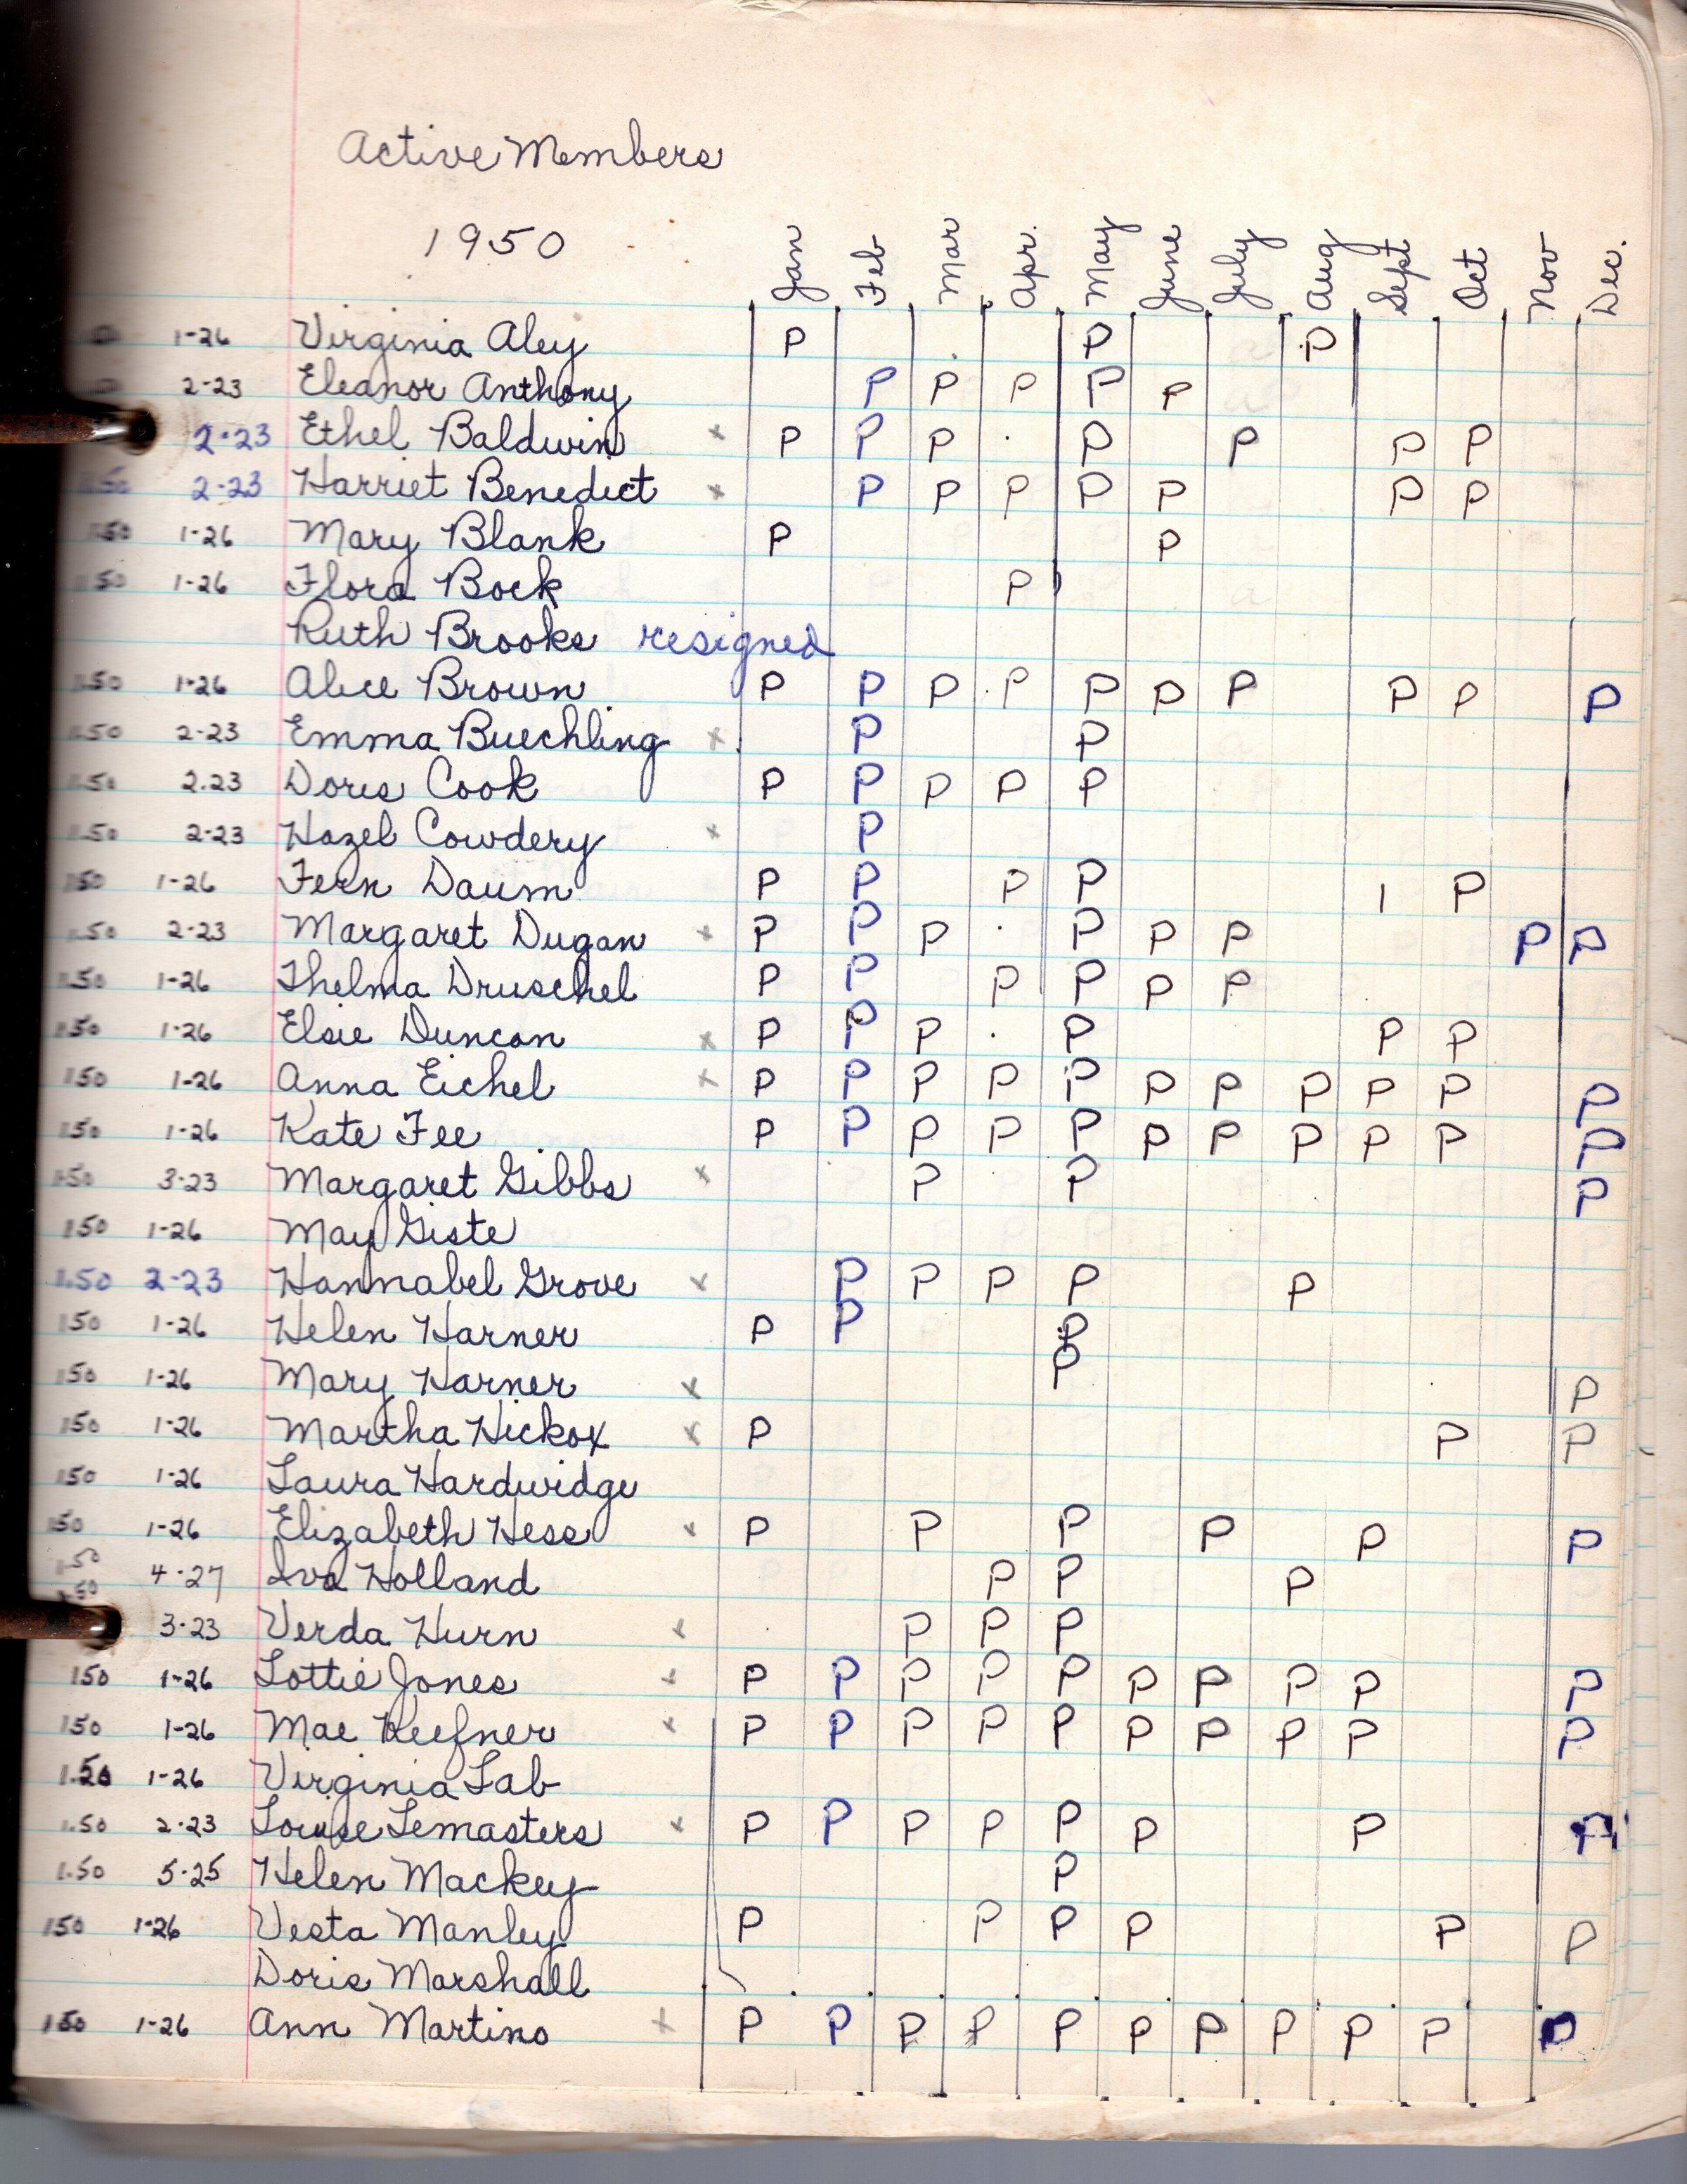 Active Members
1950 Jan Feb Mar Apr. May June July Aug Sept Oct Nov Dec.
1-26 Virginia Aley P P P
2-23 Eleanor Anthony P P P P P
2-23 Ethel Baldwin x P P P P P P P
1.50 2-23 Harriet Benedict x P P P P P P P
1.50 1-26 Mary Blank P P
1.50 1-26 Flora Bock P
Ruth Brooks resigned
1.50 1-26 Alice Brown P P P P P P P P P P
1.50 2-23 Emma Buechling x P P
1.50 2.23 Doris Cook P P P P P
1.50 2-23 Hazel Cowdery x P
150 1-26 Fern Daum P P P P 1 P
1.50 2-23 Margaret Dugan x P P P P P P P P
1.50 1-26 Thelma Druschel P P P P P P
150 1-26 Elsie Duncan x P P P P P P
150 1-26 Anna Eichel x P P P P P P P P P P P
150 1-26 Kate Fee P P P P P P P P P P P
150 3-23 Margaret Gibbs x P P P
150 1-26 May Giste
1.50 2-23 Hannabel Grove x P P P P P
150 1-26 Helen Harner P P P
150 1-26 Mary Harner x P P
150 1-26 Martha Hickox x P P P
150 1-26 Laura Hardwidge
150 1-26 Elizabeth Hess x P P P P P P
1.50 4-27 Iva Holland P P P
1.50 3-23 Verda Hurn x P P P
150 1-26 Lottie Jones x P P P P P P P P P P
150 1-26 Mae Keefner x P P P P P P P P P P
1.50 1-26 Virginia Lab
1.50 2-23 Louise Lemasters x P P P P P P P P
1.50 5-25 Helen Mackey P
150 1-26 Vesta Manley P P P P P P
Doris Marshall
150 1-26 Ann Martino x P P P P P P P P P P P